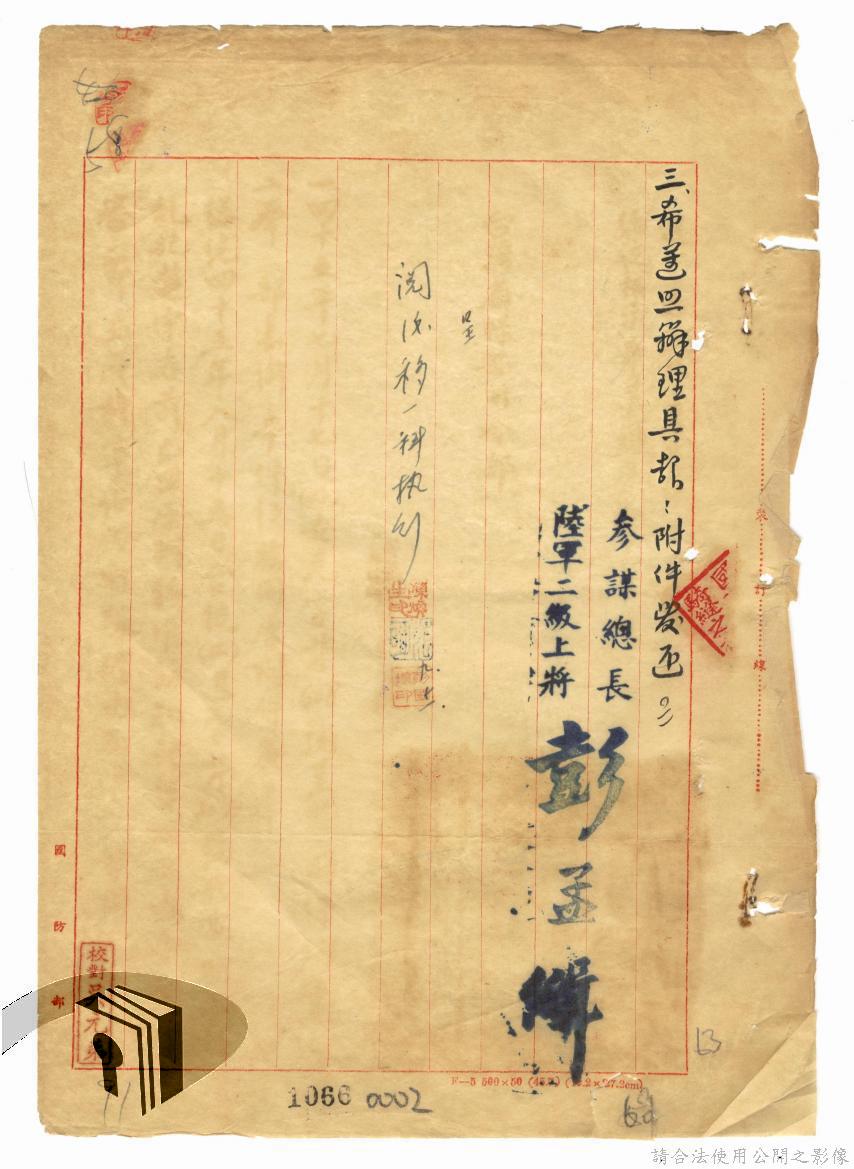 三、希遵照辦理具報；附件發還。
參謀總長
陸軍二級上將
彭孟緝
呈
閱後移一科執行
裝訂線
騎縫
國防部
校對吳元
1066 0002
F—5 500×50
請合法使用公開之影像